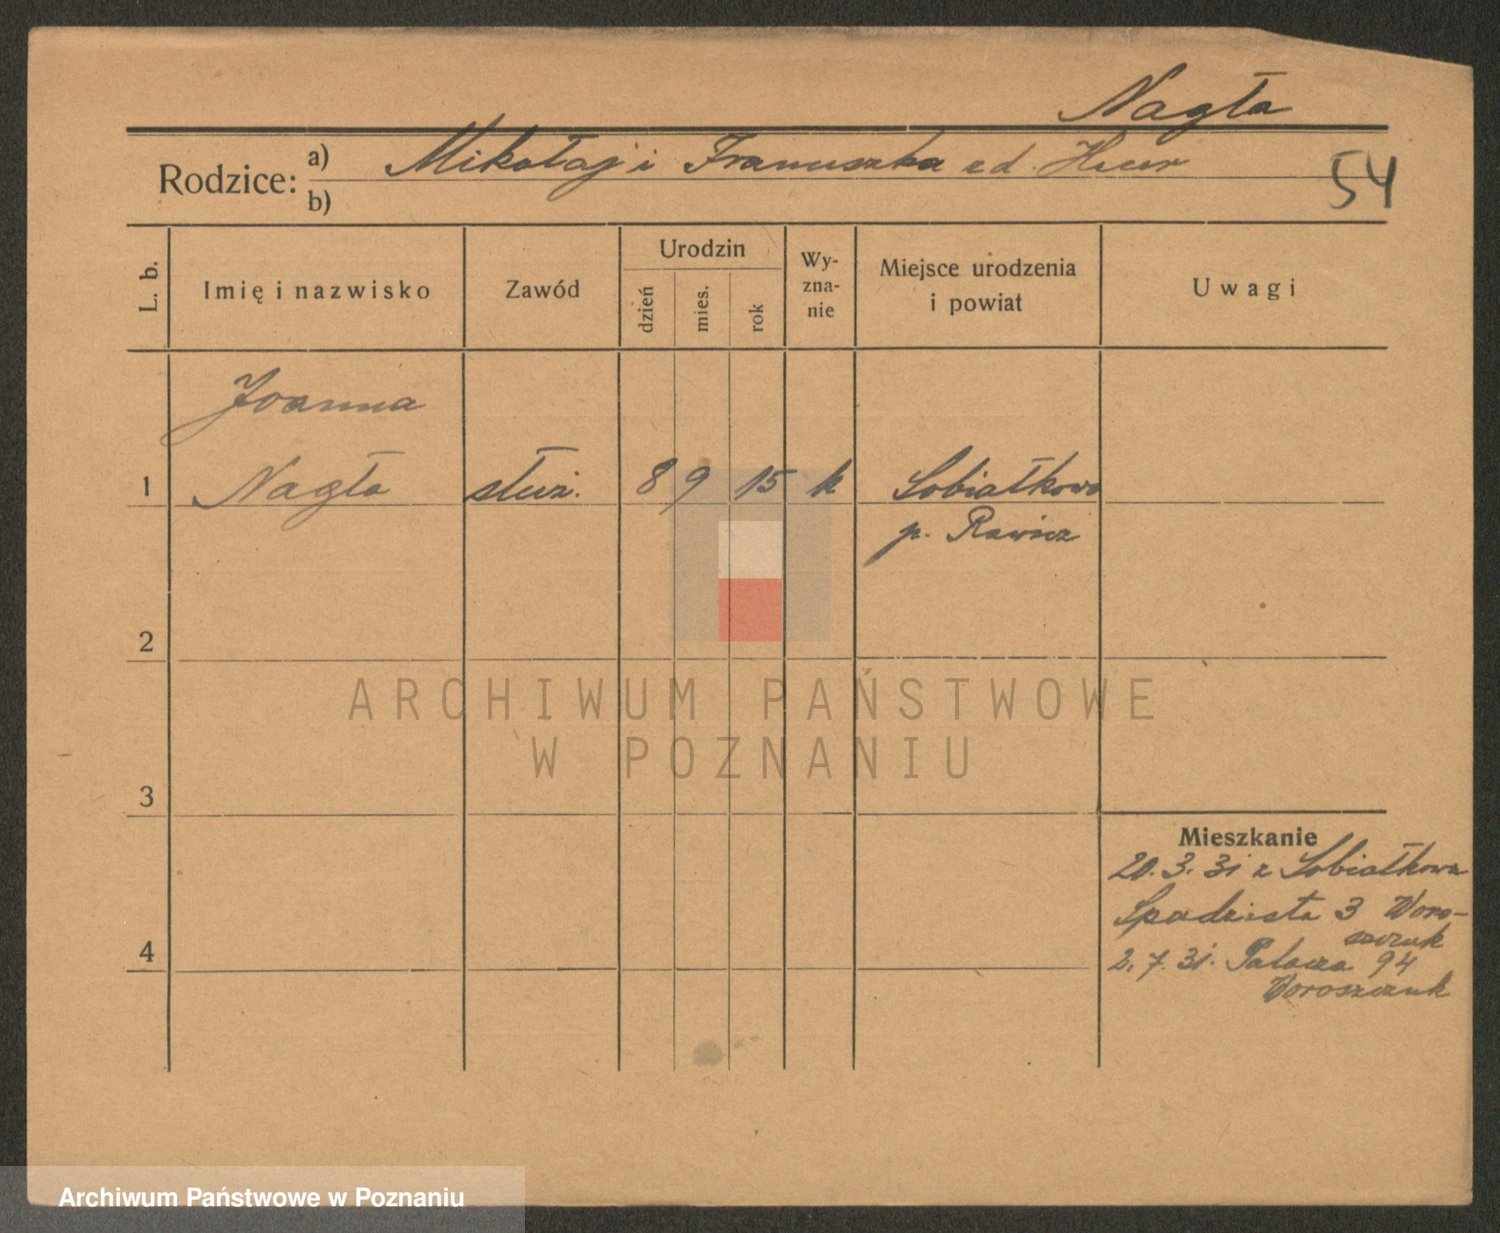 Nagła
Rodzice: a) Mikołaj i Franciszka
b)
54
L. b.
Imię i nazwisko
Zawód
Urodzin
dzień
mies.
rok
Wy-
zna-
nie
Miejsce urodzenia
i powiat
Uwagi
Joanna
1 Nagła służ. 8 9 15 k Sobiałkowo
p. Rawicz
2
ARCHIWUM PAŃSTWOWE
W POZNANIU
3
Mieszkanie
20. 3. 31 z Sobiałkowa
Spadzista 3 Woro-
szczuk
4
2. 7. 31. Palacza 94
Woroszczuk
Archiwum Państwowe w Poznaniu